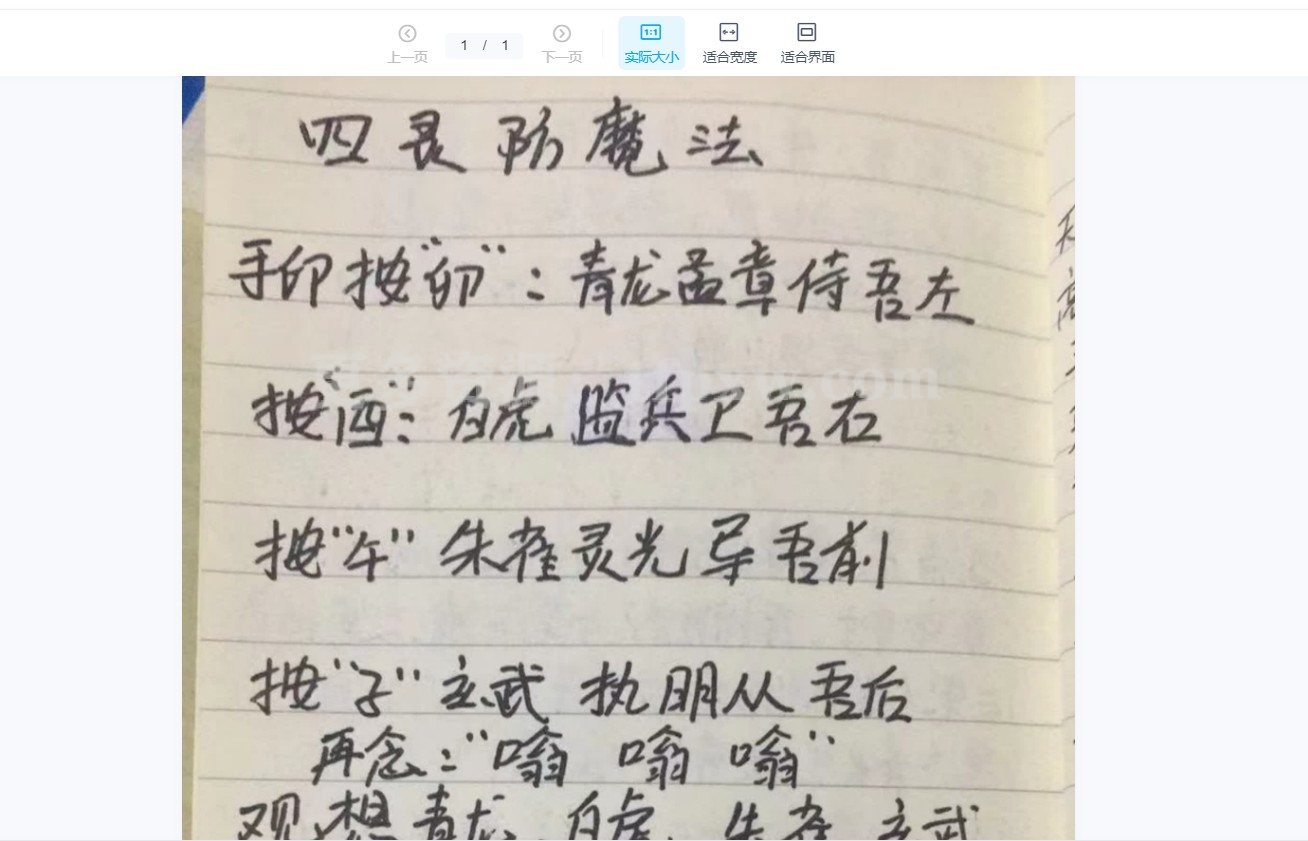 上一页 1 / 1 下一页 1:1 实际大小 适合宽度 适合界面
四灵防魔法
手印按“卯”：青龙孟章侍吾左
按“酉”：白虎监兵卫吾右
按“午”朱雀灵光导吾前
按“子”玄武执明从吾后
再念：“嗡 嗡 嗡”
观想青龙、白虎、朱雀、玄武